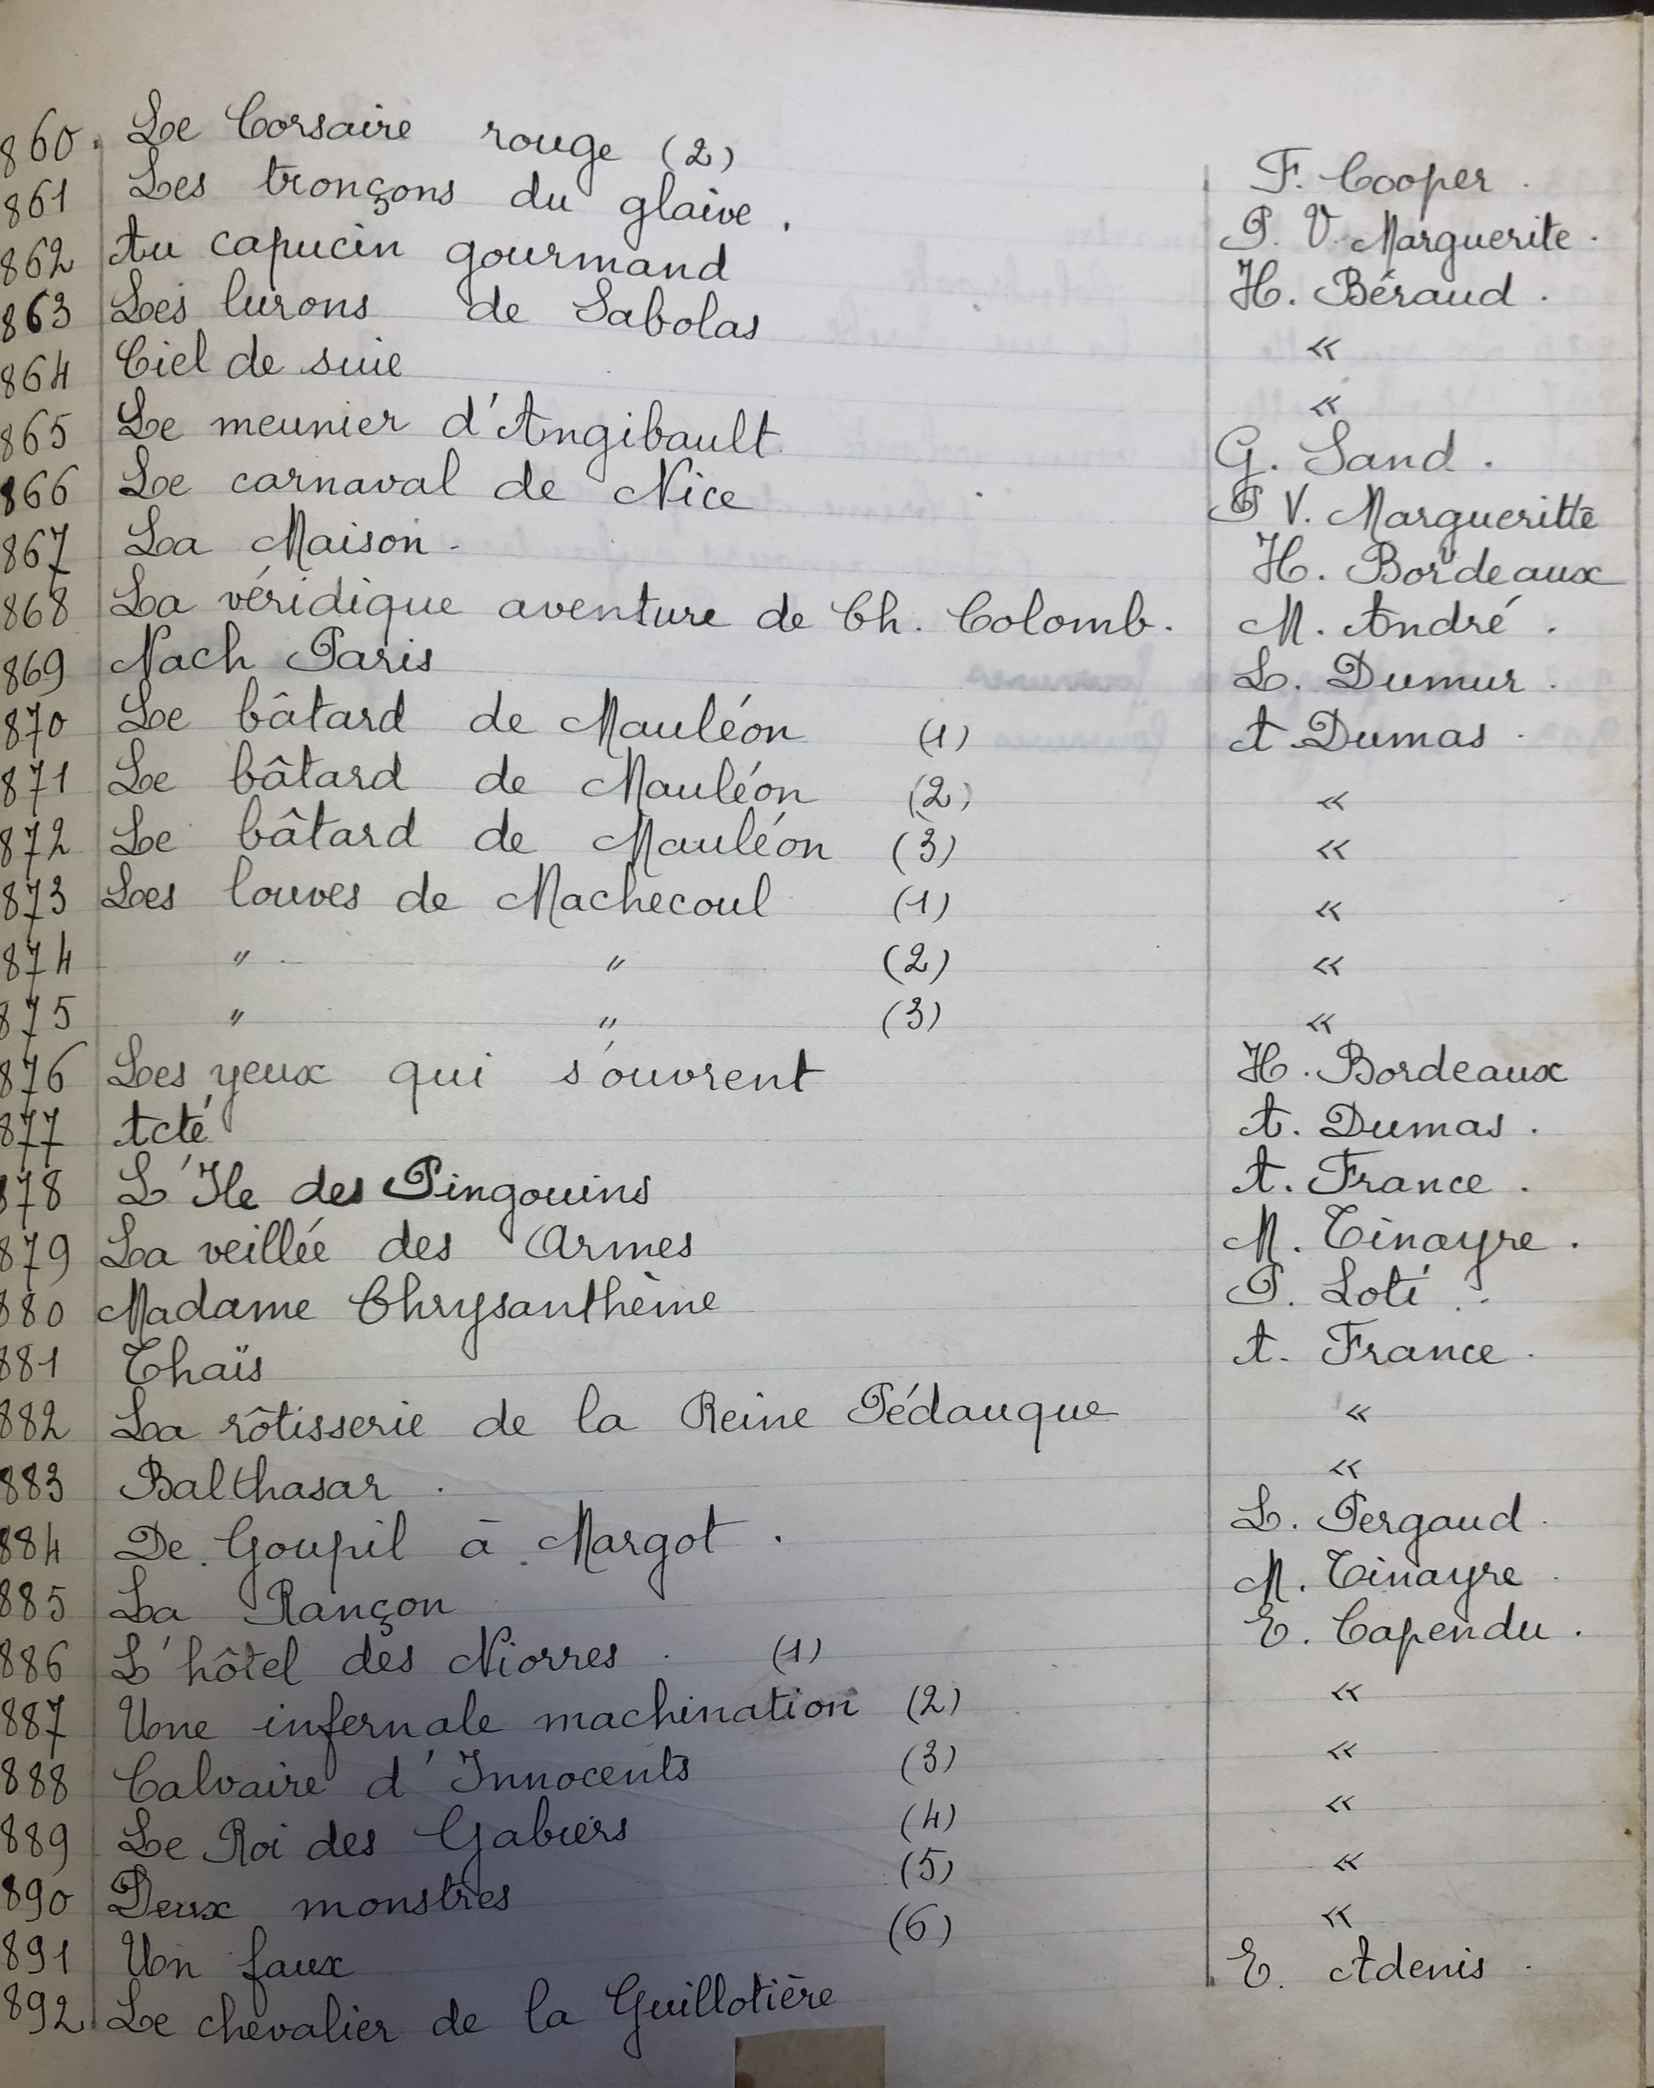 860. Le Corsaire rouge (2) F. Cooper.
861 Les tronçons du glaive. P. V. Marguerite.
862 Au capucin gourmand H. Béraud.
863 Les lurons de Sabolas «
864 Ciel de suie «
865 Le meunier d'Angibault G. Sand.
866 Le carnaval de Nice P V. Margueritte
867 La Maison. H. Bordeaux
868 La véridique aventure de Ch. Colomb. M. André.
869 Nach Paris L. Dumur.
870 Le bâtard de Mauléon (1) A. Dumas.
871 Le bâtard de Mauléon (2) «
872 Le bâtard de Mauléon (3) «
873 Les louves de Machecoul (1) «
874 " " (2) «
875 " " (3) «
876 Les yeux qui s'ouvrent H. Bordeaux
877 Acté A. Dumas.
878 L'Ile des Pingouins A. France.
879 La veillée des Armes M. Tinayre.
880 Madame Chrysanthème P. Loti.
881 Thaïs A. France.
882 La rôtisserie de la Reine Pédauque «
883 Balthasar. «
884 De Goupil à Margot. L. Pergaud.
885 La Rançon M. Tinayre.
886 L'hôtel des Niorres. (1) E. Capendu.
887 Une infernale machination (2) «
888 Calvaire d'Innocents (3) «
889 Le Roi des Gabiers (4) «
890 Deux monstres (5) «
891 Un faux (6) «
892 Le chevalier de la Guillotière E. Adenis.